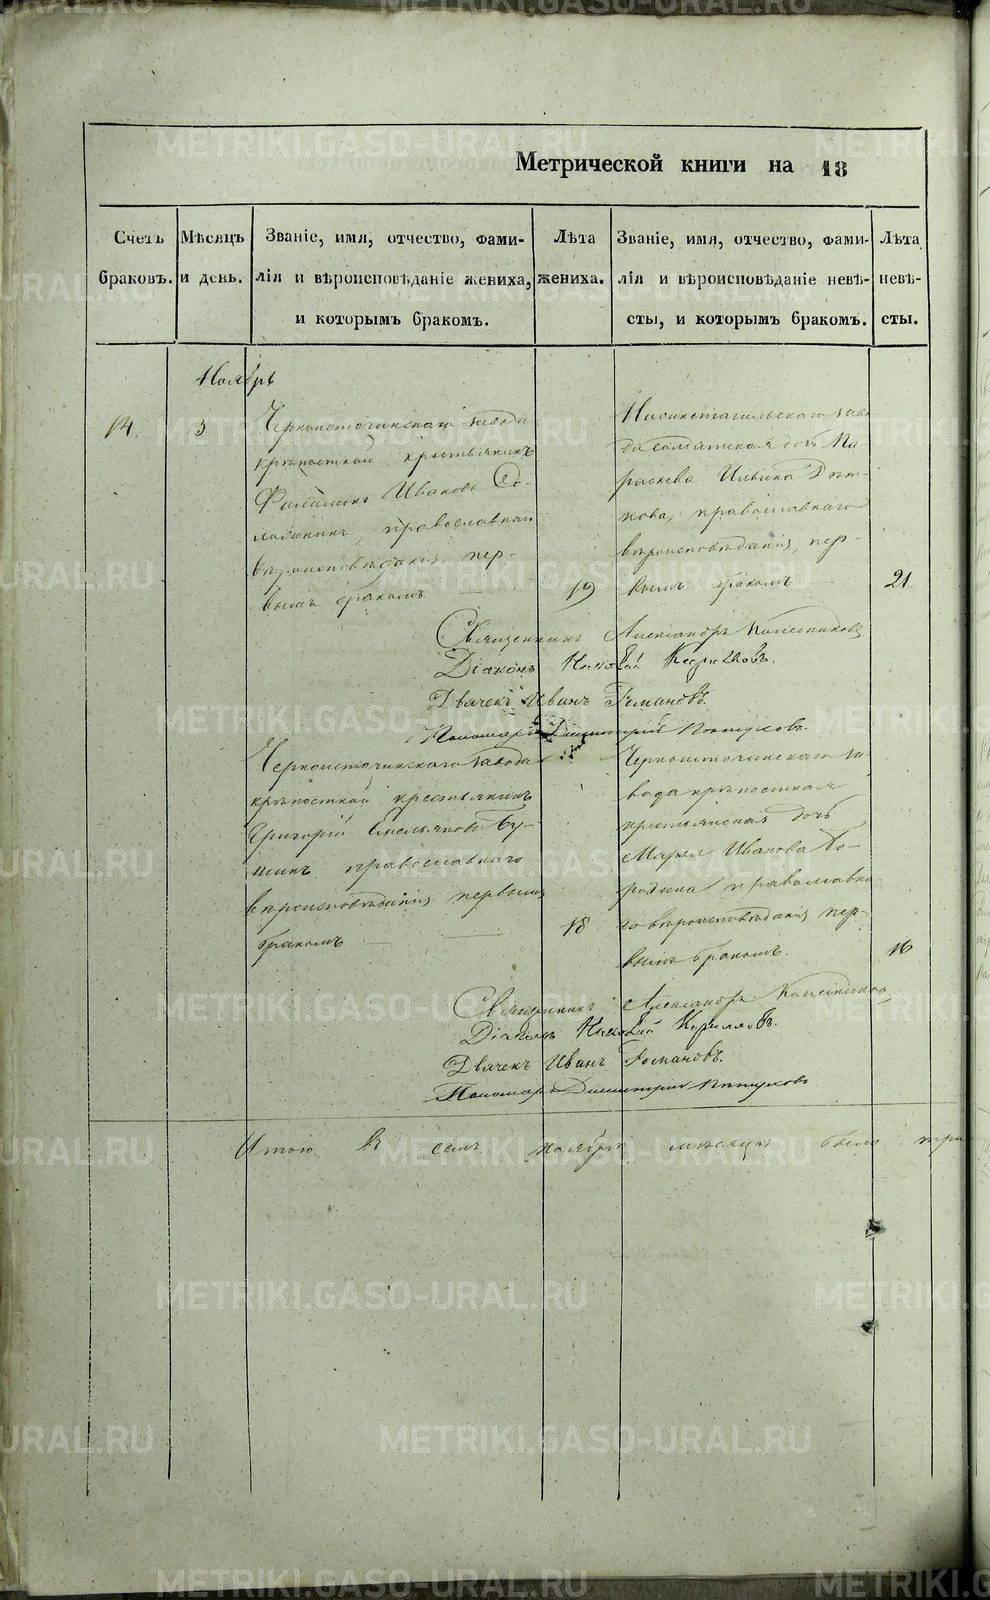 Метрической книги на 18
Счетъ браковъ.
Мѣсяцъ и день.
Званіе, имя, отчество, фами-
лія и вѣроисповѣданіе жениха,
и которымъ бракомъ.
Лѣта жениха.
Званіе, имя, отчество, фами-
лія и вѣроисповѣданіе невѣ-
сты, и которымъ бракомъ.
Лѣта невѣ-
сты.
Ноябрь
14. 3
Черноисточинскаго завода
крѣпостной крестьянинъ
Ивановъ
православнаго
вѣроисповѣданія, пер-
вымъ бракомъ
19
Нижнетагильскаго заво
да солдатская дочь Па-
раскева Ильина
православнаго
вѣроисповѣданія, пер-
вымъ бракомъ
21.
Священникъ Александръ Колесниковъ
Діаконъ Николай
Дьячекъ Иванъ Романовъ.
Пономарь Димитрій
Черноисточинскаго завода
крѣпостной крестьянинъ
Григорій Емельяновъ
православнаго
вѣроисповѣданія первымъ
бракомъ
18
Черноисточинскаго за
вода крѣпостная
крестьянская дочь
Марья Иванова Бо-
родина православна
го вѣроисповѣданія пер-
вымъ бракомъ.
16
Священникъ Александръ Колесниковъ
Діаконъ Николай
Дьячекъ Иванъ Романовъ.
Пономарь Димитрій
Итого въ семъ ноябрѣ мѣсяцѣ было три
METRIKI.GASO-URAL.RU